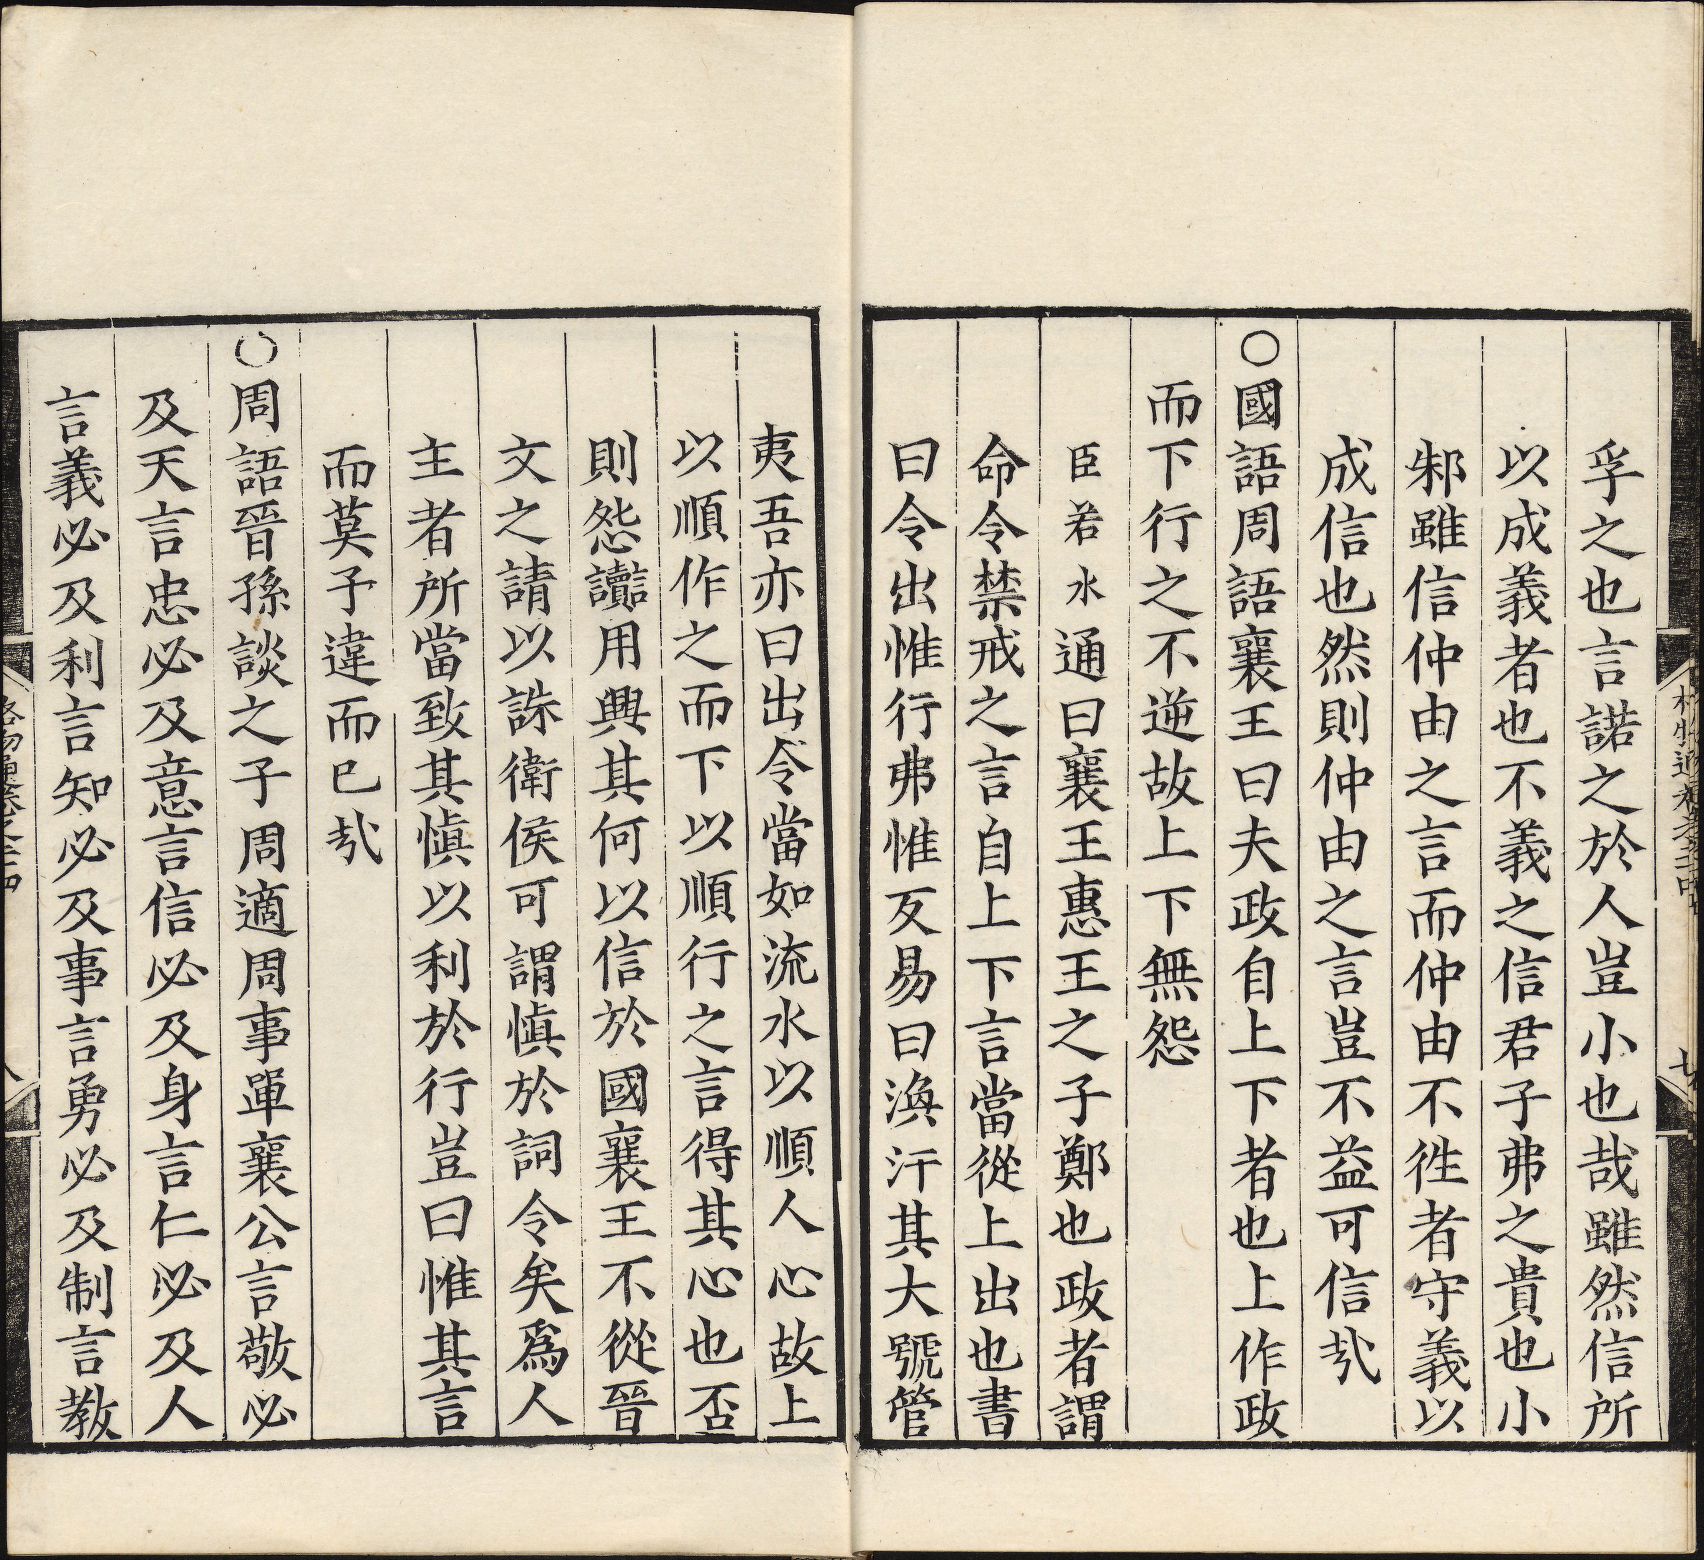 孚之也言諾之於人豈小也哉雖然信所
以成義者也不義之信君子弗之貴也小
邾雖信仲由之言而仲由不徃者守義以
成信也然則仲由之言豈不益可信㢤
○國語周語襄王曰夫政自上下者也上作政
而下行之不逆故上下無怨
臣若水通曰襄王惠王之子鄭也政者謂
命令禁戒之言自上下言當從上出也書
曰令出惟行弗惟反易曰渙汗其大號管
夷吾亦曰出令當如流水以順人心故上
以順作之而下以順行之言得其心也否
則怨讟用興其何以信於國襄王不從晉
文之請以誅衛侯可謂慎於詞令矣爲人
主者所當致其慎以利於行豈曰惟其言
而莫予違而已㢤
○周語晉孫談之子周適周事單襄公言敬必
及天言忠必及意言信必及身言仁必及人
言義必及利言知必及事言勇必及制言教